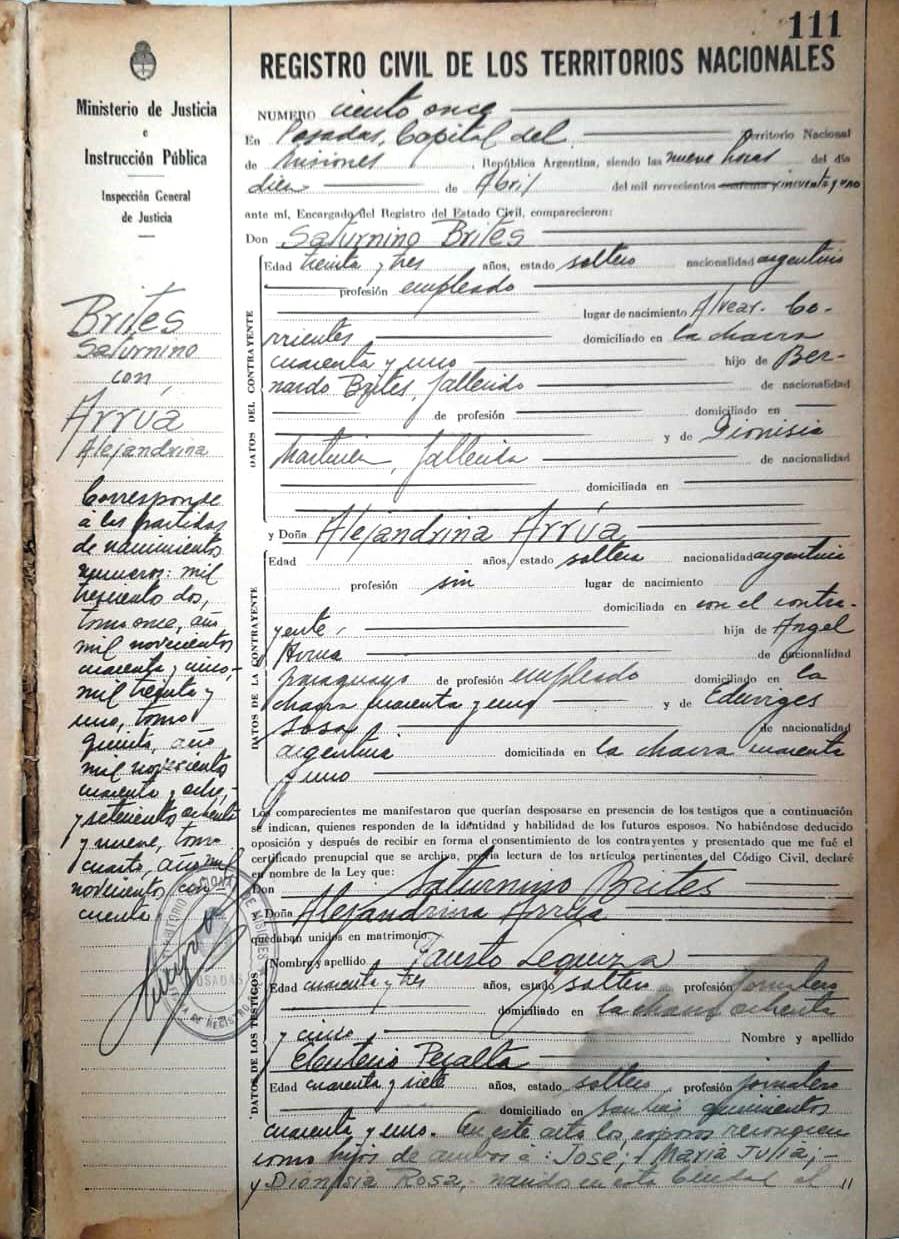 111
REGISTRO CIVIL DE LOS TERRITORIOS NACIONALES
Ministerio de Justicia
e
Instrucción Pública
Inspección General
de Justicia
Brites
Saturnino
con
Arrúa
Alejandrina
Corresponde
a las partidas
de nacimientos
numeros: mil
trescientos dos,
tomo once, año
mil novecientos
cuarenta y cinco,-
mil treinta y
uno, tomo
quinto, año
mil novecientos
cuarenta y ocho,-
y setecientos ochenta
y nueve, tomo
cuarto, año mil
novecientos cin-
cuenta.-
POSADAS
NUMERO ciento once
En Posadas, Capital del territorio Nacional
de Misiones, República Argentina, siendo las nueve horas del día
diez de Abril del mil novecientos cincuenta y uno
ante mí, Encargado del Registro del Estado Civil, comparecieron:
Don Saturnino Brites
DATOS DEL CONTRAYENTE
Edad treinta y tres años, estado soltero nacionalidad argentino
profesión empleado
lugar de nacimiento Alvear. Co-
rrientes domiciliado en la chacra
cuarenta y uno hijo de Ber-
nardo Brites, fallecido de nacionalidad
de profesión domiciliado en
y de Dionisia
Martinez, fallecida de nacionalidad
domiciliada en
y Doña Alejandrina Arrúa
DATOS DE LA CONTRAYENTE
Edad años, estado soltera nacionalidad argentina
profesión sin lugar de nacimiento
domiciliada en con el contra-
yente, hija de Angel
Arrua de nacionalidad
paraguayo de profesión empleado domiciliado en la
chacra cuarenta y uno y de Eduviges
Sosa de nacionalidad
argentina domiciliada en la chacra cuarenta
y uno
Los comparecientes me manifestaron que querían desposarse en presencia de los testigos que a continuación
se indican, quienes responden de la identidad y habilidad de los futuros esposos. No habiéndose deducido
oposición y después de recibir en forma el consentimiento de los contrayentes y presentado que me fué el
certificado prenupcial que se archiva, previa lectura de los artículos pertinentes del Código Civil, declaré
en nombre de la Ley que:
Don Saturnino Brites
y Doña Alejandrina Arrúa
quedaban unidos en matrimonio.
DATOS DE LOS TESTIGOS
Nombre y apellido Fausto Leguiza
Edad cuarenta y tres años, estado soltero profesión jornalero
domiciliado en la chacra ochenta
y cinco Nombre y apellido
Eleuterio Peralta
Edad cuarenta y siete años, estado soltero, profesión jornalero
domiciliado en San Luis quinientos
cuarenta y uno. En este acto los esposos reconocen
como hijos de ambos a: José; Maria Julia;-
y Dionisia Rosa,- nacidos en esta Ciudad el "